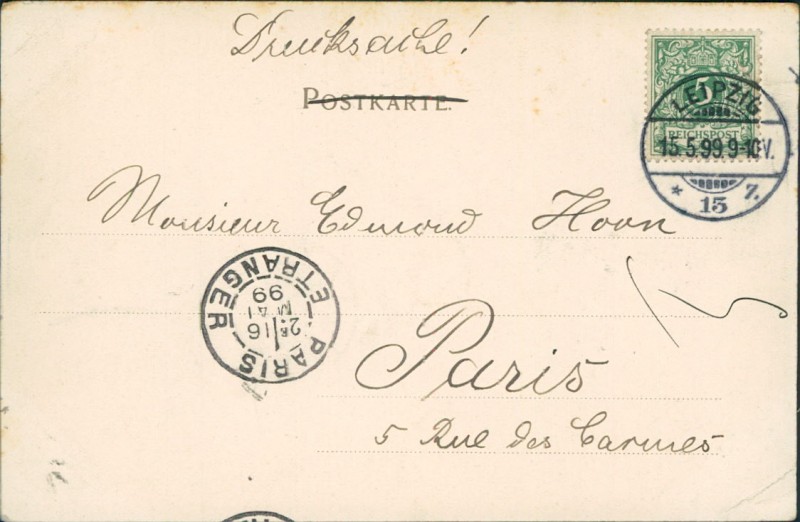 Drucksache!
POSTKARTE.
5
REICHSPOST
LEIPZIG
15.5.99.9-10V.
* 13 7.
Monsieur Edmond Hoon
PARIS ETRANGER
2E 16
MAI
99
Paris
5 Rue des Carmes